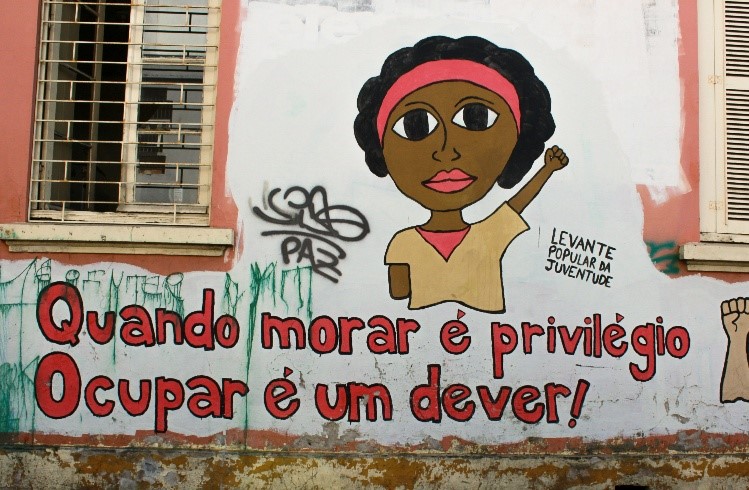 PAZ
LEVANTE
POPULAR DA
JUVENTUDE
Quando morar é privilégio
Ocupar é um dever!